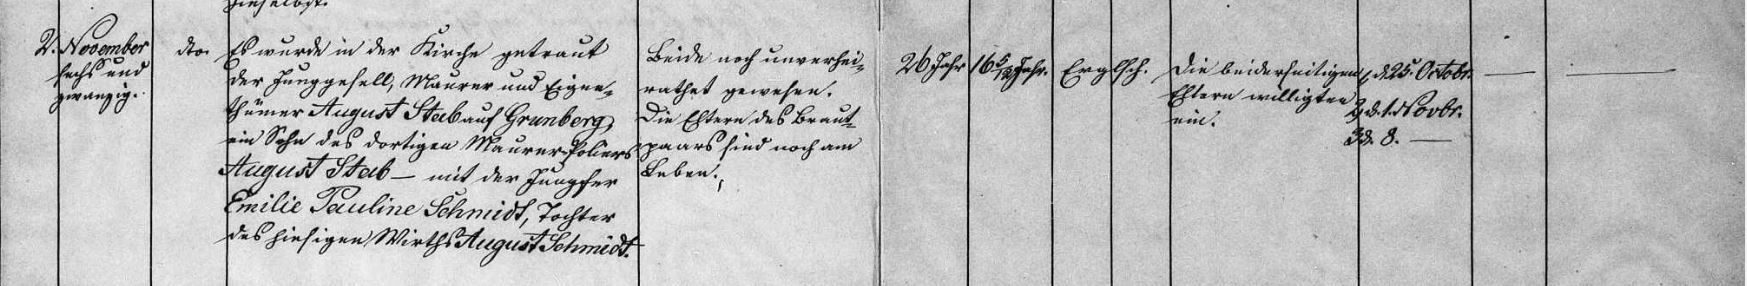 hieselbst.
2. November
sechs und
zwanzig.
dto.
Es wurde in der Kirche getraut
der Junggesell, Maurer und Eigen-
thümer August Stab auf Grunberg,
ein Sohn des dortigen Maurer-Poliers
August Stab — mit der Jungfer
Emilie Pauline Schmidt, Tochter
des hiesigen Wirths August Schmidt.
Beide noch unverhei-
rathet gewesen.
Die Eltern des Braut-
paars sind noch am
Leben.
26 Jahr
16 5/12 Jahr.
Evglsch.
Die beiderseitigen
Eltern willigten
ein.
1, d. 25. Octobr.
2, d. 1. Novbr.
3 d. 8. —